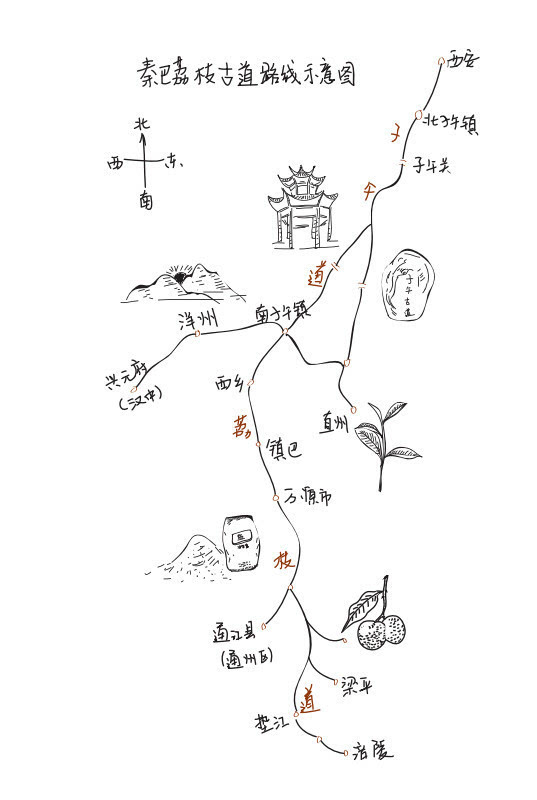 秦巴荔枝古道路线示意图
西安
北子午镇
子午关
北
西 东
南
子
午
道
子午古道
洋州
南子午镇
兴元府
(汉中)
西乡
直州
荔
镇巴
万源市
枝
通江县
(通州区)
梁平
道
垫江
涪陵